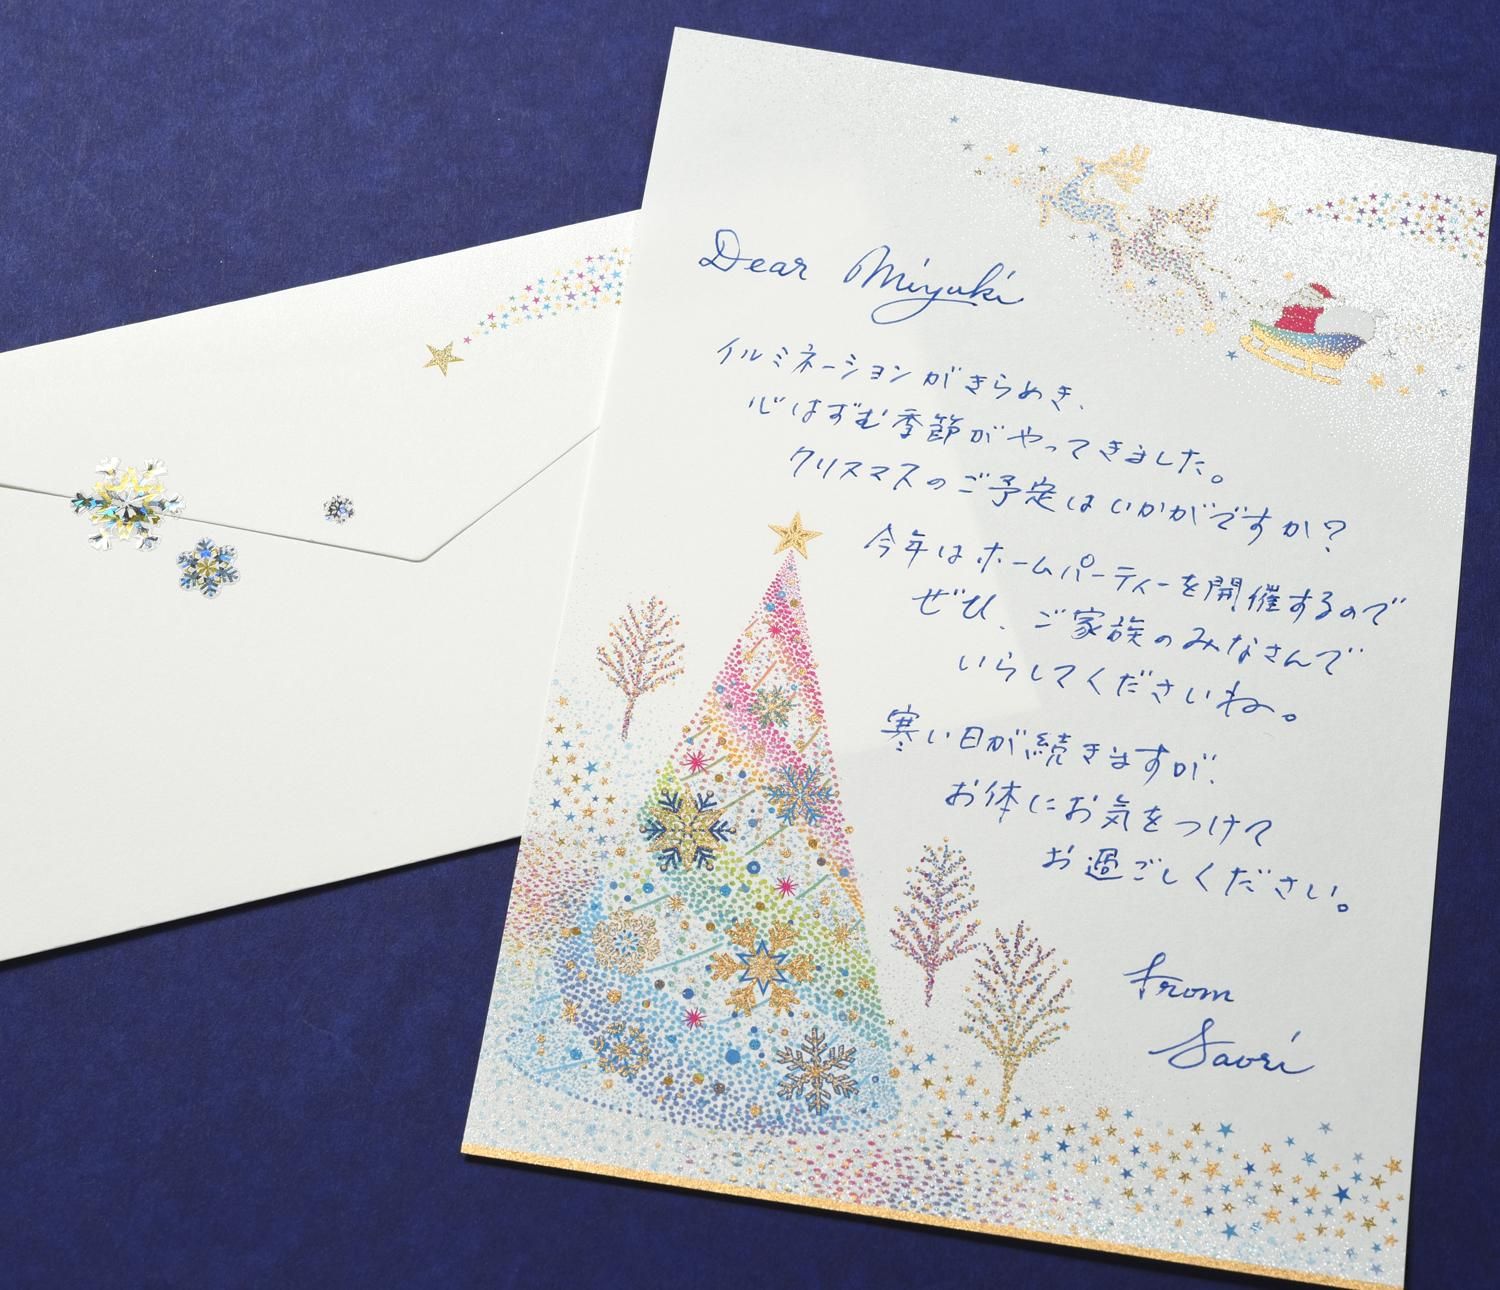 Dear Miyuki
イルミネーションがきらめき、
心はずむ季節がやってきました。
クリスマスのご予定はいかがですか?
今年はホームパーティーを開催するので
ぜひ、ご家族のみなさんで
いらしてくださいね。
寒い日が続きますが、
お体にお気をつけて
お過ごしください。
from
Saori